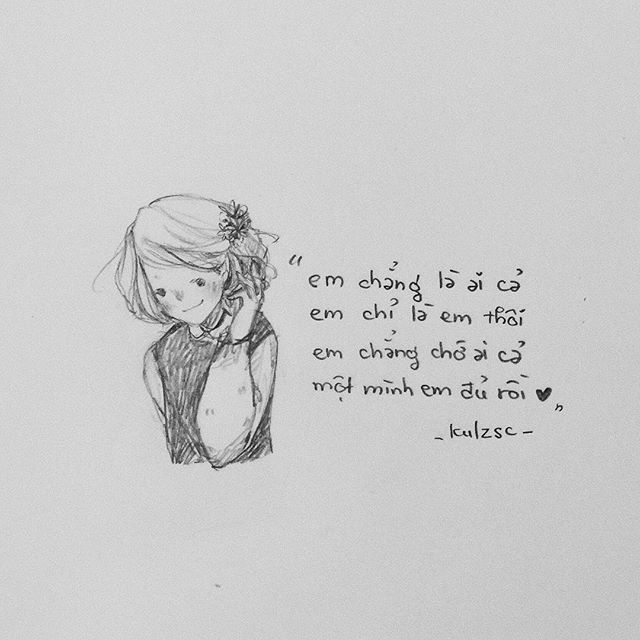 “em chẳng là ai cả
em chỉ là em thôi
em chẳng chờ ai cả
một mình em đủ rồi ♥”
- kulzsc -